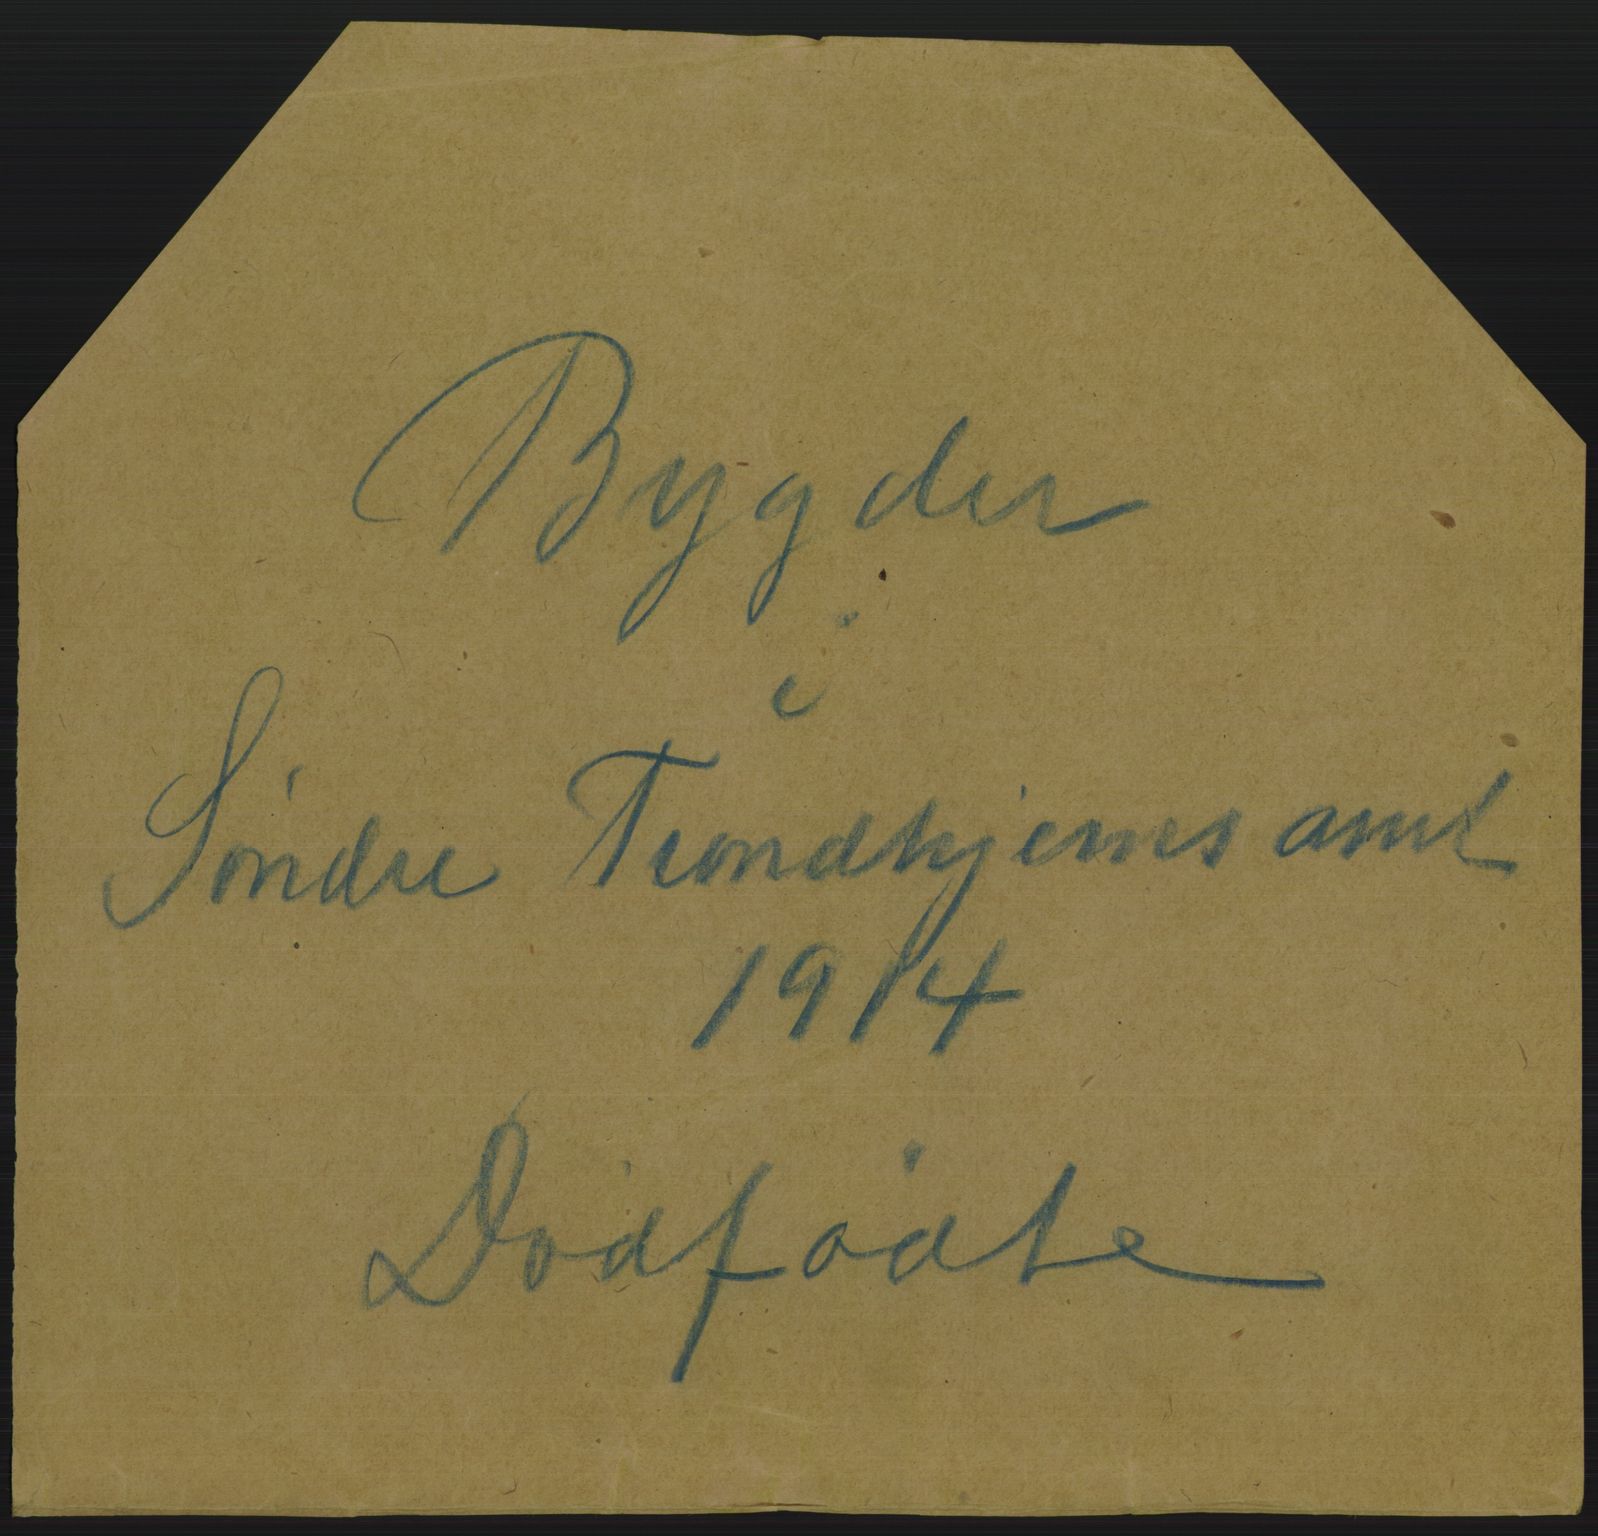 Bygder
i
Söndre Trondhjems amt
1914
Dödfödte